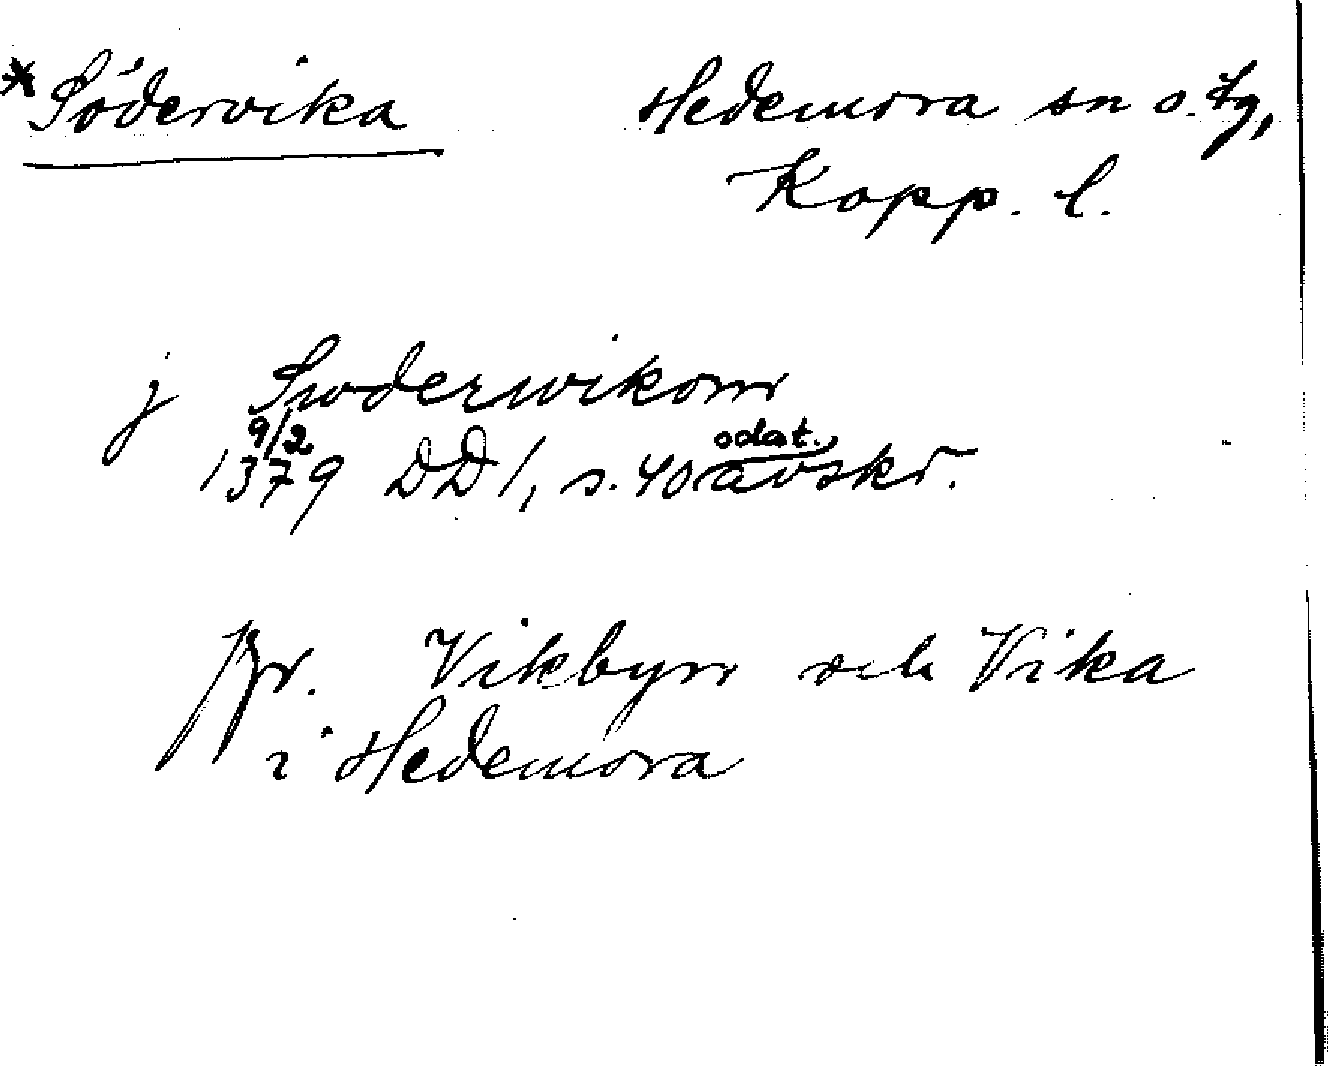 *Södervika Hedemora sn o. tg,
Kopp. l.
j Swderwikom
9/2 odat.
1379 DD 1, s. 40 avskr.
Jfr. Vikbyn och Vika
i Hedemora